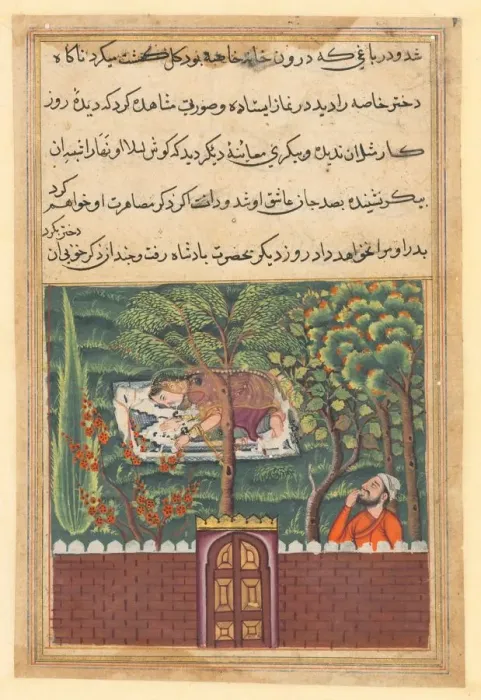 شد و در باغی که درون خانه خاصه بود کل کشت میکرد ناکاه
دختر خاصه را دید در نماز ایستاده و صورتی مشاهده کرد که دیدهٔ روز
مثل آن ندیده و پیکری معاینهٔ دیکر دید که کوش لیلا و نهار شبه آن
پیکر نشنیده بصد جان عاشق او شد و دانست اکر ذکر مصاهرت او خواهم کرد
پدر او مرا نخواهد داد روز دیکر بحضرت پادشاه رفت و چند از ذکر خوبی آن
دختر بکرد